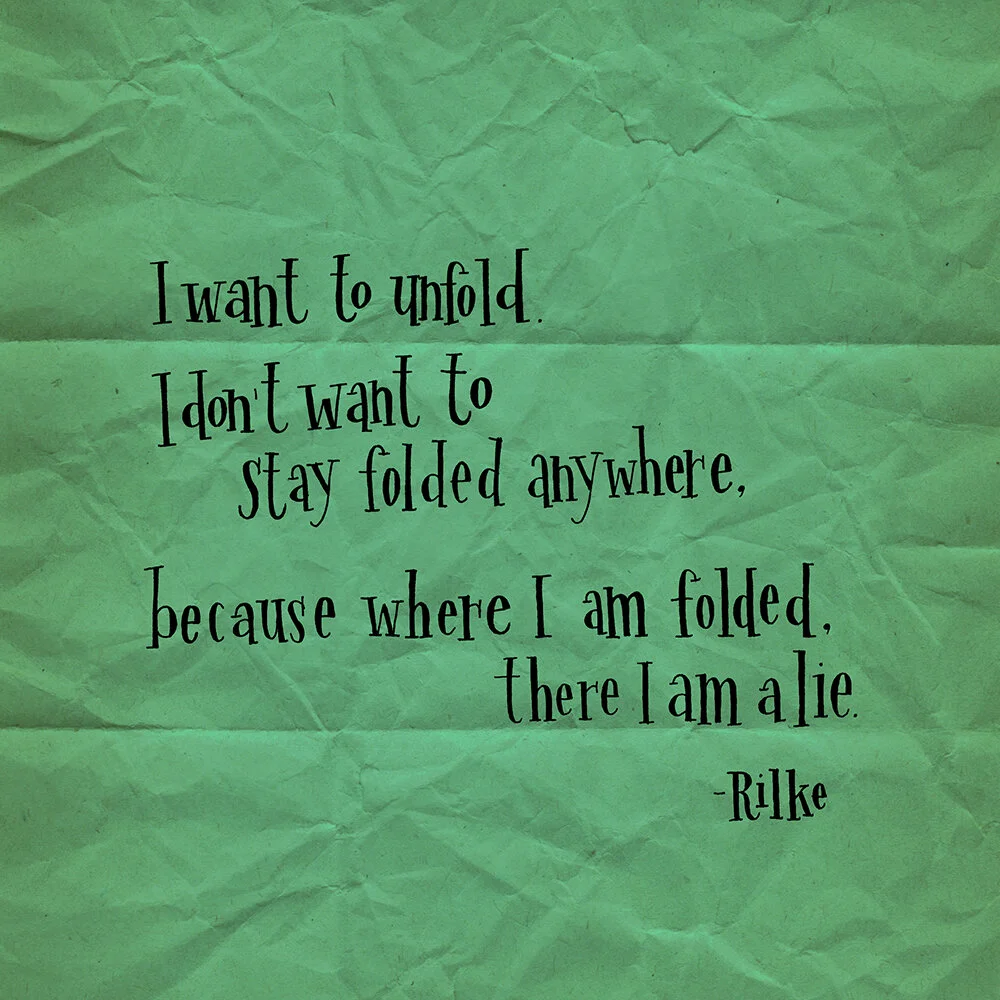 I want to unfold.
I don't want to
stay folded anywhere,
because where I am folded,
there I am a lie.
-Rilke